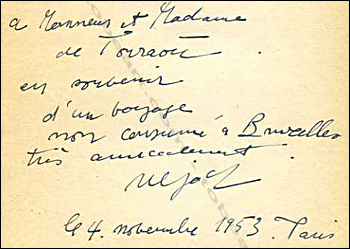 a Monsieur et Madame
de
en souvenir
d'un voyage
non consumé à Bruxelles
très amicalement
le 4. novembre 1953. Paris